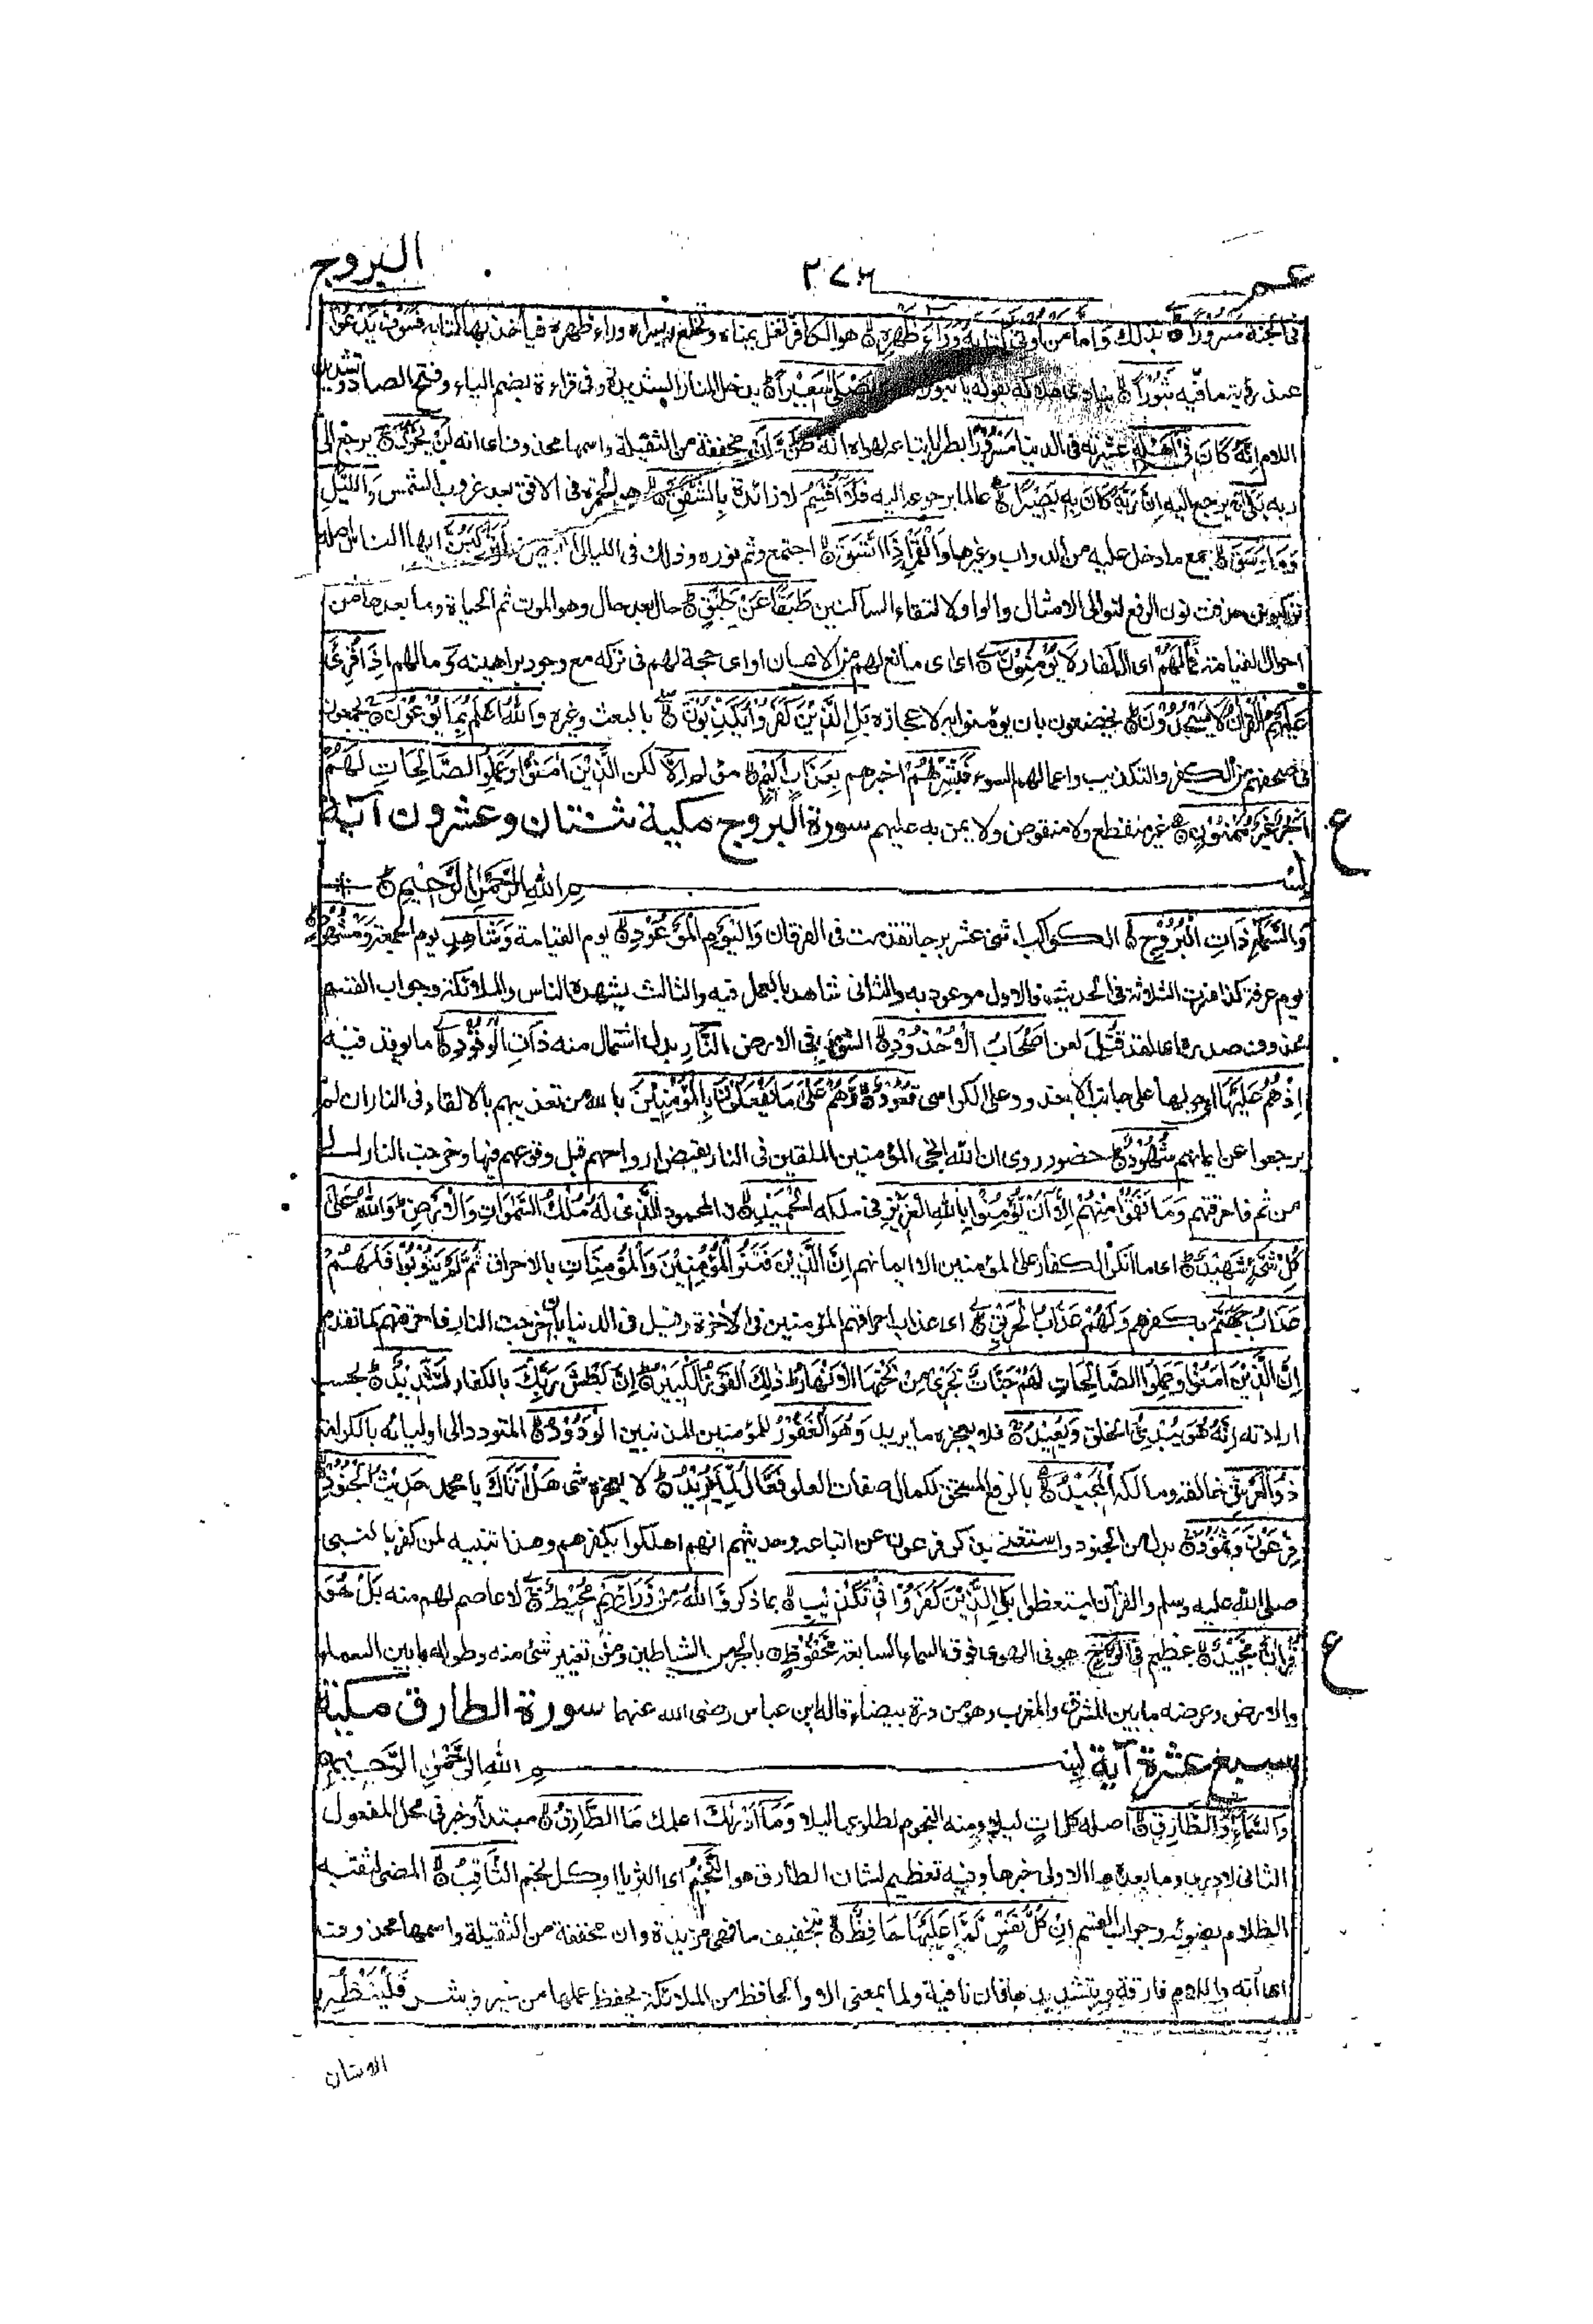 عم ٢٧٦ البروج
فى الجنة مَسْرُورًا بذلك وَاَمَّا مَنْ اُوْتِىَ كِتَابَهٗ وَرَآءَ ظَهْرِهٖ هو الكافر تغل يمناه وتخلع يسراه وراء ظهره فيأخذ بها كتابه فَسَوْفَ يَدْعُوْا
عند رؤيته ما فيه ثُبُوْرًا ينادى هلاكه بقوله يا ثبوراه وَيَصْلٰى سَعِيْرًا يدخل النار الشديدة وفى قراءة بضم الياء وفتح الصاد وتشديد
اللام اِنَّهٗ كَانَ فِىْ اَهْلِهٖ عشيرته فى الدنيا مَسْرُوْرًا بطرا باتباعه لهواه اِنَّهٗ ظَنَّ اَنْ مخففة من الثقيلة واسمها محذوف اى انه لَنْ يَّحُوْرَ يرجع الى
ربه بَلٰى يرجع اليه اِنَّ رَبَّهٗ كَانَ بِهٖ بَصِيْرًا عالما برجوعه اليه فَلَآ اُقْسِمُ لا زائدة بِالشَّفَقِ هو الحمرة فى الافق بعد غروب الشمس وَالَّيْلِ
وَمَا وَسَقَ جمع ما دخل عليه من الدواب وغيرها وَالْقَمَرِ اِذَا اتَّسَقَ اجتمع وتم نوره وذلك فى الليالى البيض لَتَرْكَبُنَّ ايها الناس اصله
تركبونن حذفت نون الرفع لتوالى الامثال والواو لالتقاء الساكنين طَبَقًا عَنْ طَبَقٍ حالا بعد حال وهو الموت ثم الحياة وما بعدها من
احوال القيامة فَمَا لَهُمْ اى الكفار لَا يُؤْمِنُوْنَ اى اى مانع لهم من الايمان او اى حجة لهم فى تركه مع وجود براهينه وَ ما لهم اِذَا قُرِئَ
عَلَيْهِمُ الْقُرْاٰنُ لَا يَسْجُدُوْنَ يخضعون بان يؤمنوا به لاعجازه بَلِ الَّذِيْنَ كَفَرُوْا يُكَذِّبُوْنَ بالبعث وغيره وَاللّٰهُ اَعْلَمُ بِمَا يُوْعُوْنَ يجمعون
فى صحفهم من الكفر والتكذيب واعمالهم السوء فَبَشِّرْهُمْ اخبرهم بِعَذَابٍ اَلِيْمٍ مؤلم اِلَّا لكن الَّذِيْنَ اٰمَنُوْا وَعَمِلُوا الصَّالِحَاتِ لَهُمْ
اَجْرٌ غَيْرُ مَمْنُوْنٍ غير منقطع ولا منقوص ولا يمن به عليهم سورة البروج مكية ثنتان وعشرون آية ع
بسم الله الرَّحْمٰنِ الرَّحِيْمِ
وَالسَّمَآءِ ذَاتِ الْبُرُوْجِ الكواكب اثنى عشر برجا تقدمت فى الفرقان وَالْيَوْمِ الْمَوْعُوْدِ يوم القيامة وَشَاهِدٍ يوم الجمعة وَمَشْهُوْدٍ
يوم عرفة كذا فسرت الثلاثة فى الحديث فالاول موعود به والثانى شاهد بالعمل فيه والثالث يشهده الناس والملائكة وجواب القسم
محذوف صدره اى لقد قُتِلَ لعن اَصْحَابُ الْاُخْدُوْدِ الشق فى الارض النَّارِ بدل اشتمال منه ذَاتِ الْوَقُوْدِ ما يوقد فيه
اِذْ هُمْ عَلَيْهَا اى حولها على جانب الاخدود على الكراسى قُعُوْدٌ وَهُمْ عَلٰى مَا يَفْعَلُوْنَ بِالْمُؤْمِنِيْنَ بالله من تعذيبهم بالالقاء فى النار ان لم
يرجعوا عن ايمانهم شُهُوْدٌ حضور روى ان الله انجى المؤمنين الملقين فى النار بقبض ارواحهم قبل وقوعهم فيها وخرجت النار الى
من ثم فاحرقتهم وَمَا نَقَمُوْا مِنْهُمْ اِلَّآ اَنْ يُّؤْمِنُوْا بِاللّٰهِ الْعَزِيْزِ فى ملكه الْحَمِيْدِ المحمود الَّذِىْ لَهٗ مُلْكُ السَّمٰوَاتِ وَالْاَرْضِ وَاللّٰهُ عَلٰى
كُلِّ شَىْءٍ شَهِيْدٌ اى ما انكر الكفار على المؤمنين الا ايمانهم اِنَّ الَّذِيْنَ فَتَنُوا الْمُؤْمِنِيْنَ وَالْمُؤْمِنَاتِ بالاحراق ثُمَّ لَمْ يَتُوْبُوْا فَلَهُمْ
عَذَابُ جَهَنَّمَ بكفرهم وَلَهُمْ عَذَابُ الْحَرِيْقِ اى عذاب احراقهم المؤمنين فى الآخرة وقيل فى الدنيا بان خرجت النار فاحرقتهم كما تقدم
اِنَّ الَّذِيْنَ اٰمَنُوْا وَعَمِلُوا الصَّالِحَاتِ لَهُمْ جَنَّاتٌ تَجْرِىْ مِنْ تَحْتِهَا الْاَنْهَارُ ذٰلِكَ الْفَوْزُ الْكَبِيْرُ اِنَّ بَطْشَ رَبِّكَ بالكفار لَشَدِيْدٌ بحسب
ارادته اِنَّهٗ هُوَ يُبْدِئُ الخلق وَيُعِيْدُ فلا يعجزه ما يريد وَهُوَ الْغَفُوْرُ للمؤمنين المذنبين الْوَدُوْدُ المتودد الى اوليائه بالكرامة
ذُو الْعَرْشِ خالقه ومالكه الْمَجِيْدُ بالرفع المستحق لكمال صفات العلو فَعَّالٌ لِّمَا يُرِيْدُ لا يعجزه شئ هَلْ اَتَاكَ يا محمد حَدِيْثُ الْجُنُوْدِ
فِرْعَوْنَ وَثَمُوْدَ بدل من الجنود واستغنى بذكر فرعون عن اتباعه وحديثهم انهم اهلكوا بكفرهم وهذا تنبيه لمن كفر بالنبى
صلى الله عليه وسلم والقرآن ليتعظوا بَلِ الَّذِيْنَ كَفَرُوْا فِىْ تَكْذِيْبٍ بما ذكر وَّاللّٰهُ مِنْ وَّرَآئِهِمْ مُّحِيْطٌ لا عاصم لهم منه بَلْ هُوَ
قُرْاٰنٌ مَّجِيْدٌ عظيم فِىْ لَوْحٍ هو فى الهواء فوق السماء السابعة مَّحْفُوْظٍ بالجر من الشياطين ومن تغيير شئ منه وطوله ما بين السماء ع
والارض وعرضه ما بين المشرق والمغرب وهو من درة بيضاء قاله ابن عباس رضى الله عنهما سورة الطارق مكية
سبع عشرة آية بسم اللهِ الرَّحْمٰنِ الرَّحِيْمِ
وَالسَّمَآءِ وَالطَّارِقِ اصله كل آت ليلا ومنه النجوم لطلوعها ليلا وَمَآ اَدْرٰىكَ اعلمك مَا الطَّارِقُ مبتدأ وخبر فى محل المفعول
الثانى لادرى وما بعد ما الاولى خبرها وفيه تعظيم لشان الطارق هو النَّجْمُ اى الثريا او كل نجم الثَّاقِبُ المضئ لثقبه
الظلام بضوئه وجواب القسم اِنْ كُلُّ نَفْسٍ لَّمَا عَلَيْهَا حَافِظٌ بتخفيف ما فهى مزيدة وان مخففة من الثقيلة واسمها محذوف
اى انه واللام فارقة وبتشديدها فان نافية ولما بمعنى الا والحافظ من الملائكة يحفظ عملها من خير وشر فَلْيَنْظُرِ
الانسان